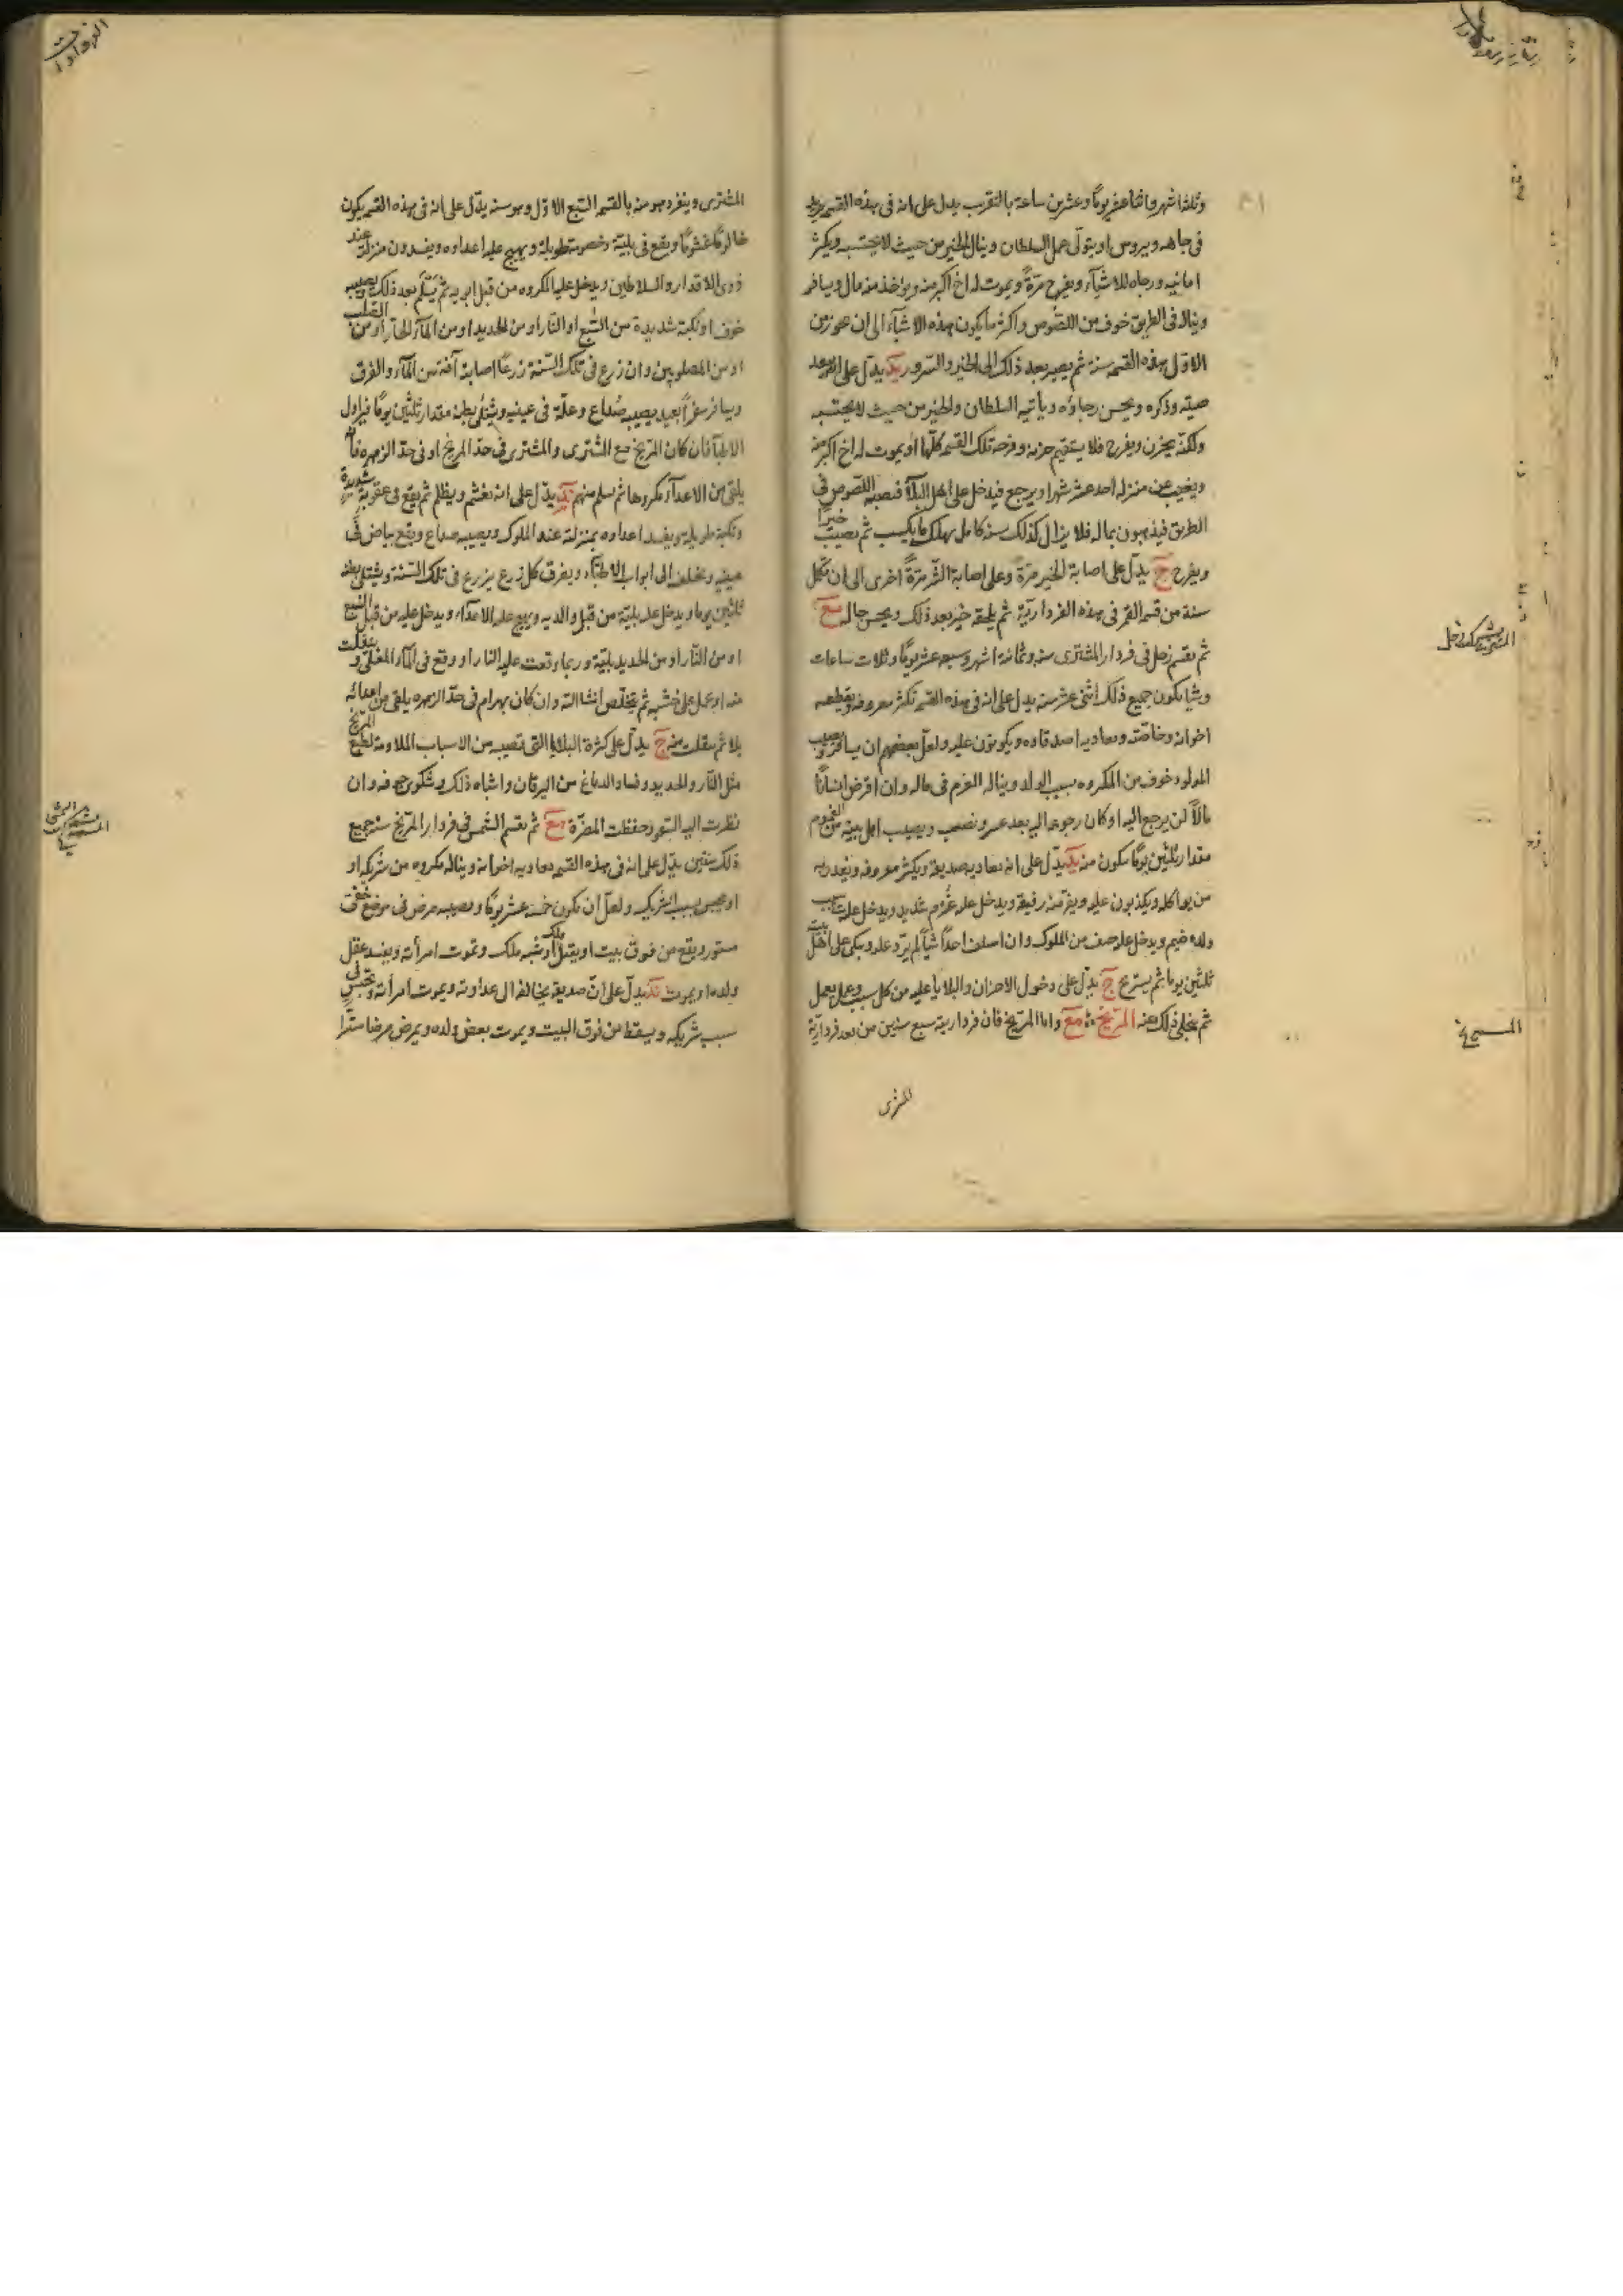 وثلثة اشهر واثنا عشر يومًا وعشرين ساعة بالتقريب يدل على انه فى هذه القسمة يزيد
فى جاهه ويروس او يتولّى عمل السلطان وينال الخير من حيث لا يحتسب ويكثر
امانيه ورجاه للاشيآء ويفرح مرّةً ويموت له اخ اكبر منه ويؤاخذ منه مال ويسافر
ويناله فى الطريق خوف من اللصوص واكثر ما يكون هذه الاشيآء الى ان
الاوّل هذه القسمة سنة ثم يصير بعد ذلك الى الخير والسرور يدلّ على
صيته وذكره ويحسن رجاؤه ويأتيه السلطان والخير من حيث لا يحتسبه
ولكنّه يحزن ويفرح فلا يستقيم حزنه وفرحه تلك القسمة كلّها او يموت له اخ اكبر منه
ويغيب عن منزله احد عشر شهرا ويرجع فيدخل على اهل البلآء فيصيبه اللصوص فى
الطريق فيذهبون بماله فلا يزال كذلك سنة كامل يهلك ما يكسب ثم يصيب خيرًا
ويفرح ج يدلّ على اصابة الخير مرّةً وعلى اصابة الشّر مرّةً اخرى الى ان تكمل
سنة من قسمة القمر فى هذه الفرداريّة ثم يلحقه خير بعد ذلك ويحسن حاله مع
ثم يقسم زحل فى فردار المشترى سنة وثمانية اشهر وسبعة عشر يومًا وثلاث ساعات
وشيا يكون جميع ذلك اثنى عشر سنة يدل على انه فى هذه القسمة تكثر معروفه ويقطعه
اخوانه وخاصّته ويعاديه اصدقاده ويكونون عليه ولعلّ بعضهم ان يسافر ويصيب
المولود خوف من المكروه بسبب الولد ويناله الغرم فى ماله وان اقرض انسانًا
مالًا لن يرجع اليه او كان رجوعه اليه بعد عسر ونصب ويصيب اهل بيته من الغموم
مقدار ثلثين يومًا يكون منه يد يدّل على انه يعاديه صديقه ويكثر معروفه
من يواكله ويكذبون عليه ويفرّ منه رفيقه ويدخل عليه غُرم شديد ويدخل عليه
ولده ضيم ويدخل عليه من الملوك وان اسلف احدًا شيأً لم يردّ عليه ويبكى على اهل بيته
ثلثين يوما ثم يستريح ج يدّل على دخول الاحزان والبلايا عليه من كل سبب وعمل يعمل
ثم يتخلى ذلك عنه المرّيخ مع واما المرّيخ فان فرداريته سبع سنين من بعد فرداريّة
المشترى
المشترى وينفرد هو منه بالقسم السّبع الاوّل وهو سنة يدّل على انه فى هذه القسمة يكون
ظالمًا غشومًا ويقع فى بليّة وخصومة طويلة ويهيج عليه اعداوه ويفسدون منزلته عند
ذوى الاقدار والسلاطين ويدخل عليه المكروه من قبل ابويه ثم يَسلَم بعد ذلك ويصيبه
خوف او نكبة شديدة من السّبع او النّار او من الحديد او من المآء الحارّ او من الصّلب
او من المصلوبين وان زرع فى تلك السّنة زرعًا اصابه آفة من المآء والغرق
ويسافر سفرًا بعيد يصيبه صُداع وعلّة فى عينيه ويشتكى بطنه مقدار ثلثين يومًا فيزاول
الاطبآء فان كان المرّيخ مع المشترى والمشترى فى حدّ المرّيخ او فى حدّ الزهرة فانه
يلقى من الاعدآء مكروها ثم يسلم منهم يد يدّل على انه يغشم ويظلم ثم يقع فى عقوبة شديدة
ونكبة طويلة ويفسد اعداوه بمنزلته عند الملوك ويصيبه صداع ويقع بياض فى
عينيه ويختلف الى ابواب الاطبّآء ويغرق كل زرع يزرع فى تلك السّنة ويشتكى بطنه
ثلثين يوما ويدخل عليه بليّة من قبل والديه ويهيج عليه الاعدآء ويدخل عليه من قبل السّبع
او من النّار او من الحديد بليّة وربما وقعت عليه النار او وقع فى المآء المغلى وينفلت
منه او يحمل على خشبة ثم يتخلّص انشا الله وان كان بهرام فى حدّ الزهره يلقى من اعدائه
بلا ثم ينفلت منه ج يدّل على كثرة البلايا التى تصيبه من الاسباب الملاومة لطبع المرّيخ
مثل النّار والحديد وفساد الدماغ من اليرقان واشباه ذلك ويشكون جوفه وان
نظرت اليه السّعود حفظت المضرّة مع ثم تقسم الشمس فى فردار المرّيخ سنة جميع
ذلك سنتين يدّل على انه فى هذه القسمة يعاديه اخوانه ويناله مكروه من شريكه او
او يحبس بسبب الشريك ولعلّ ان يكون خمسة عشر يومًا ويصيبه مرض فى موضع خفىّ
مستور ويقع من فوق بيت او يقتل ملك او شبه ملك وتموت امرأته ويفسد عقل
ولده او يموت يد يدّل على انّ صديقه يخالفه الى عداوته ويموت امرأته ويحبس فى
سبب شريكه ويسقط من فوق البيت ويموت بعض ولده ويمرض مرضا مستّرا